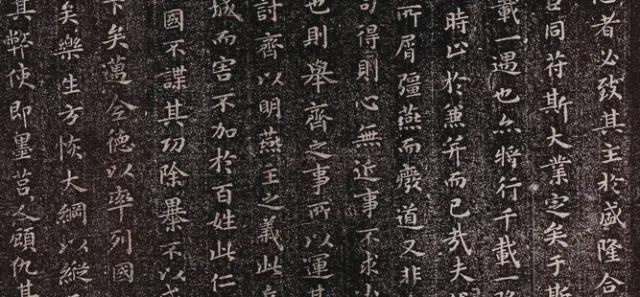 者必致其主於盛隆合
同苻斯大業定矣于斯
載一遇也亦將行千載一
時止於兼并而已哉夫
所屑彊燕而廢道又非
苟得則心無近事不求小
也則舉齊之事所以運其
討齊以明燕主之義此兵
城而害不加於百姓此仁
國不謀其功除暴不以
下矣邁全德以率列國
矣樂生方恢大綱以縱
其弊使即墨莒人顧仇其